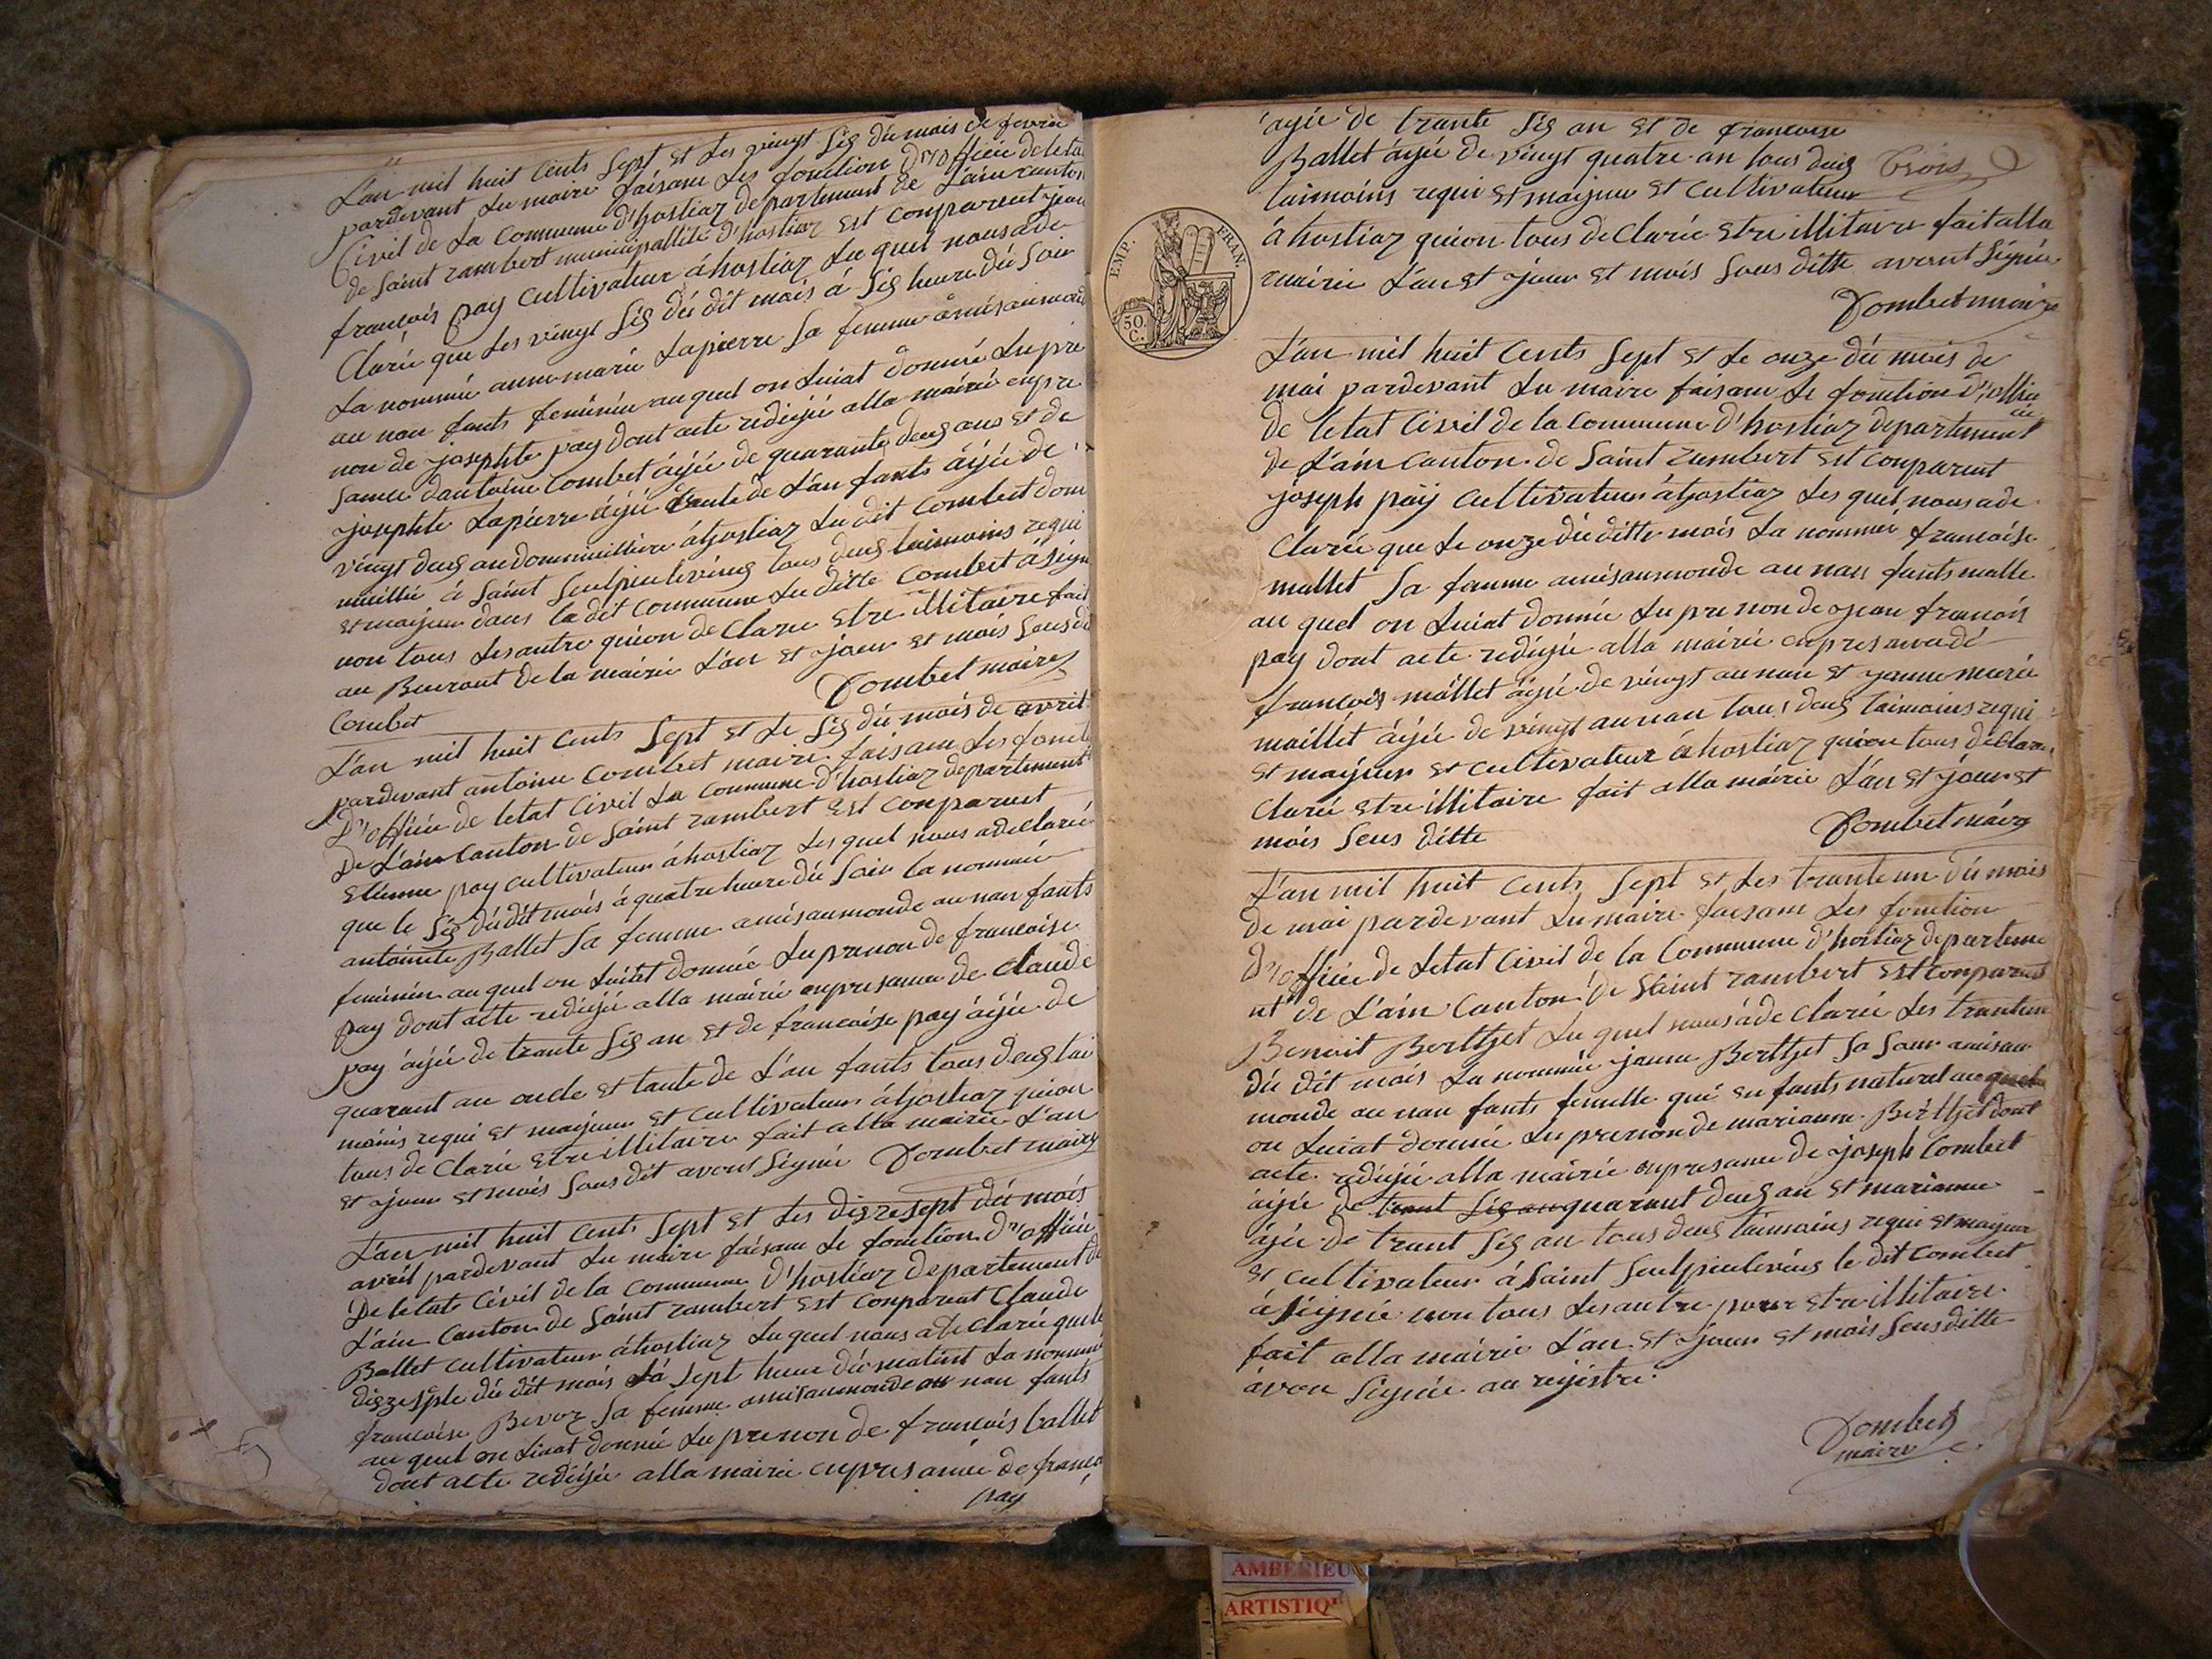 L'an mil huit Cents Sept et Les vingt Sig du mois de fevrie
pardevant Le maire faisant Les fonction d'officie de leta
Civil de La Commune d'hostiaz departement de L'ain Canton
de Saint rambert municipallité d'hostiaz est Conparent jean
francois pay Cultivateur á hostiaz Le quel nous a de
Clarie que Les vingt Sig dú dit mois á Sig heure dú Soir
La nommée anne marie Lapierre Sa femme a mis au mond
au nan fants feminin au quel on Luiat donnée Le pre
non de josephte pay dont acte redigé alla mairie en pre
sance dantoine Combet ágé de quarante deug ans et de
josephte Lapierre ágé tante de L'an fants ágé de
vingt deug an dommicillier á hostiaz Le dit Combet dom
micillie á Saint Seulpicelevieug tous deug taimoins requi
et majeur dans la dit Commune Le ditte Combet a Signe
non tous Les autre quion de Clare etre illitaire fait
au Beurant de la mairie L'an et jour et mois Sous di
Combet Combet maire
L'an mil huit Cents Sept et Le Sig dú mois de avril
pardevant antoine Combet maire faisant Les foncti
d'officie de letat Civil La Commune d'hostiaz departement
de L'ain Canton de Saint rambert est Conparent
etienne pay Cultivateur á hostiaz Les quel nous a declarée
que le Sig dú dit mois á quatre heure dú Soir la nommée
antoinete Ballet Sa femme a mis au monde au nan fants
feminin au quel on Luiat donnée Le prenon de francoise
pay dont acte redigé alla mairie en presance de Claude
pay ágé de trante Sig an et de francoise pay ágé de
quarant an oncle et tante de L'an fants tous deug tai
moins requi et majeur et Cultivateur á hostiaz quion
tous de Clarie etre illitaire fait alla mairie L'an
et jour et mois Sous dit avons Signé Combet maire
L'an mil huit Cents Sept et Les digzesept dú mois
avril pardevant Le maire faisant Le fonction d'officie
De letat Civil de la Commune d'hostiaz departement de
L'ain Canton de Saint rambert est Conparent Claude
Ballet Cultivateur á hostiaz Le quel nous a de Clarée que le
digzespte dú dit mois á Sept heure dú matint La nommée
francoise Bevoz Sa femme a mis au monde au nan fants
au quel on Luiat donnée Le prenon de francois ballet
dont acte redigé alla mairie en presance de franco
pay
agée de trante Sig an et de francoise
Ballet ágé de vingt quatre an tous deug trois
taimoins requi et majeur et Cultivateur
á hostiaz quion tous de Clarie etre illitaire fait alla
mairie L'an et jour et mois Sous ditte avont Signée
Combet maire
EMP. FRAN.
50. C.
L'an mil huit Cents Sept et Le onze dú mois de
mai pardevant Le maire faisant Le fonction d'offici
de letat Civil de la Commune d'hostiaz departement
de L'ain Canton de Saint rambert est Conparent
joseph pay Cultivateur á hostiaz Les quel nous a de
Clarée que Le onze dú ditte mois La nommée francoise
mallet Sa famme a mis au monde au nan fants malle
au quel on Luiat donnée Le pre non de jean francois
pay dont acte redigé alla mairie en presance dé
francois mallet ágé de vingt au nan et janne marie
maillét ágé de vingt au nan tous deug taimoins requi
et majeur et Cultivateur á hostiaz quion tous de Clarer
Clarie etre illitaire fait alla mairie L'an et jour et
mois Sous ditte Combet maire
L'an mil huit Cents Sept et Les trante un dú mois
de mai pardevant Le maire faisant Les fonction
d'officie de Letat Civil de la Commune d'hostiaz departeme
nt de L'ain Canton de Saint rambert est Conparent
Benoit Berthet Le quel nous á de Clarée Les trante un
dú dit mois La nommée janne Berthet Sa Sœur a mis au
monde au nan fants femelle qui en fants natural au quel
on Luiat donnée Le prenon de marianne Berthet dont
acte redigé alla mairie en presance de joseph Combet
agé de trant Sig an quarant deug an et marianne
ágé de trant Sig an tous deug taimoins requi et majeur
et Cultivateur á Saint Seulpicelevieug le dit Combet
á Signée non tous Les autre pour etre illitaire
fait alla mairie L'an et jour et mois Sous ditte
avon Signée au registre
Combet
maire
AMBERIEU
ARTISTIQ